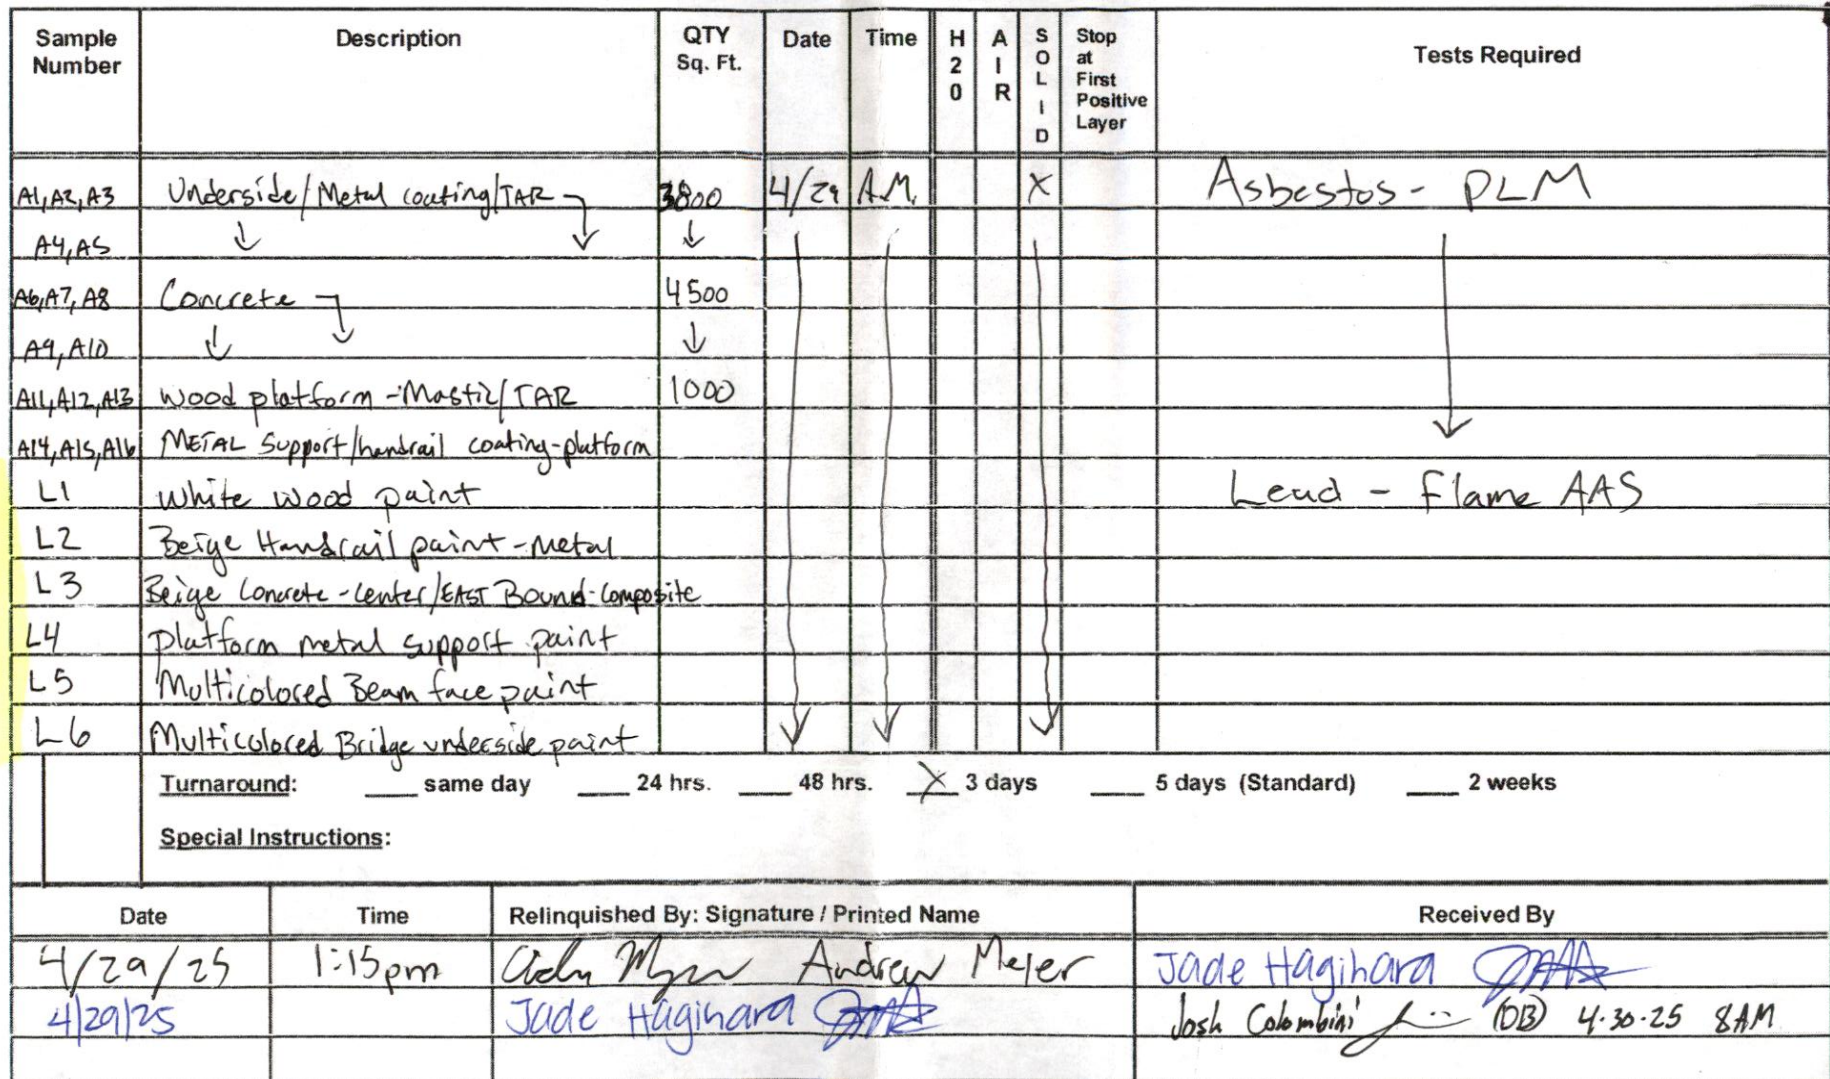 Sample Number Description QTY Sq. Ft. Date Time H20 AIR SOLID Stop at First Positive Layer Tests Required
A1, A2, A3 Underside/Metal coating/TAR 3800 4/29 A.M. X Asbestos - PLM
A4, A5 ↓ ↓ ↓
A6, A7, A8 Concrete 4500
A9, A10 ↓ ↓ ↓
A11, A12, A13 Wood platform - Mastic/TAR 1000
A14, A15, A16 METAL Support/handrail coating-platform
L1 White wood paint Lead - Flame AAS
L2 Beige Handrail paint - Metal
L3 Beige Concrete - Center/EAST Bound - Composite
L4 Platform metal support paint
L5 Multicolored Beam face paint
L6 Multicolored Bridge underside paint
Turnaround: ___ same day ___ 24 hrs. ___ 48 hrs. X 3 days ___ 5 days (Standard) ___ 2 weeks
Special Instructions:
Date Time Relinquished By: Signature / Printed Name Received By
4/29/25 1:15pm Andrew Meyer Jade Hagihara
4/29/25 Jade Hagihara Josh Colombini (OB) 4-30-25 8AM